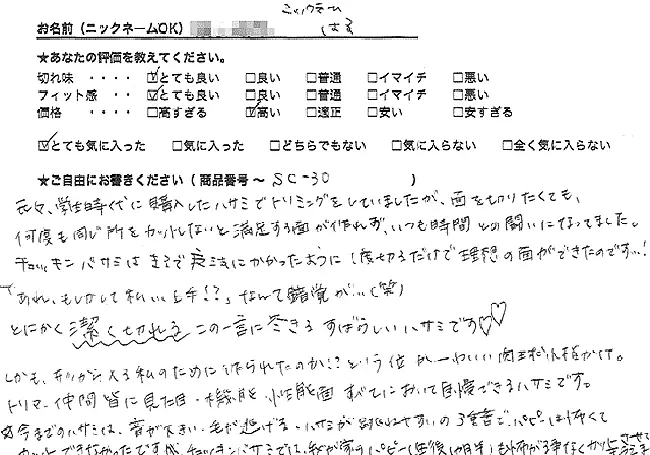 ニックネーム
お名前（ニックネームOK） はる
★あなたの評価を教えてください。
切れ味 ・・・・ ☑とても良い □良い □普通 □イマイチ □悪い
フィット感 ・・・・ ☑とても良い □良い □普通 □イマイチ □悪い
価格 ・・・・ □高すぎる ☑高い □適正 □安い □安すぎる
☑とても気に入った □気に入った □どちらでもない □気に入らない □全く気に入らない
★ご自由にお書きください（商品番号～ SC-30 ）
元々、学生時代に購入したハサミでトリミングをしていましたが、面を切りたくても、
何度も同じ所をカットしないと満足する面が作れず、いつも時間との闘いになってました。
チョッキンバサミはまるで魔法にかかったように1度切るだけで理想の面ができたのです…！
「あれ、もしかして私…上手！？」なんて錯覚が…（笑）
とにかく潔く切れる この一言に尽きる すばらしいハサミです♡♡
しかも、 私のために作られたのか！？という位 かわいい肉球
トリマー仲間皆に見た目・機能・性能面 すべてにおいて自慢できるハサミです。
今までのハサミは、音が大きい・毛が逃げる・ハサミが の3重苦で、パピーは怖くて
カットできなかったですが、チョッキンバサミでは、我が家のパピー